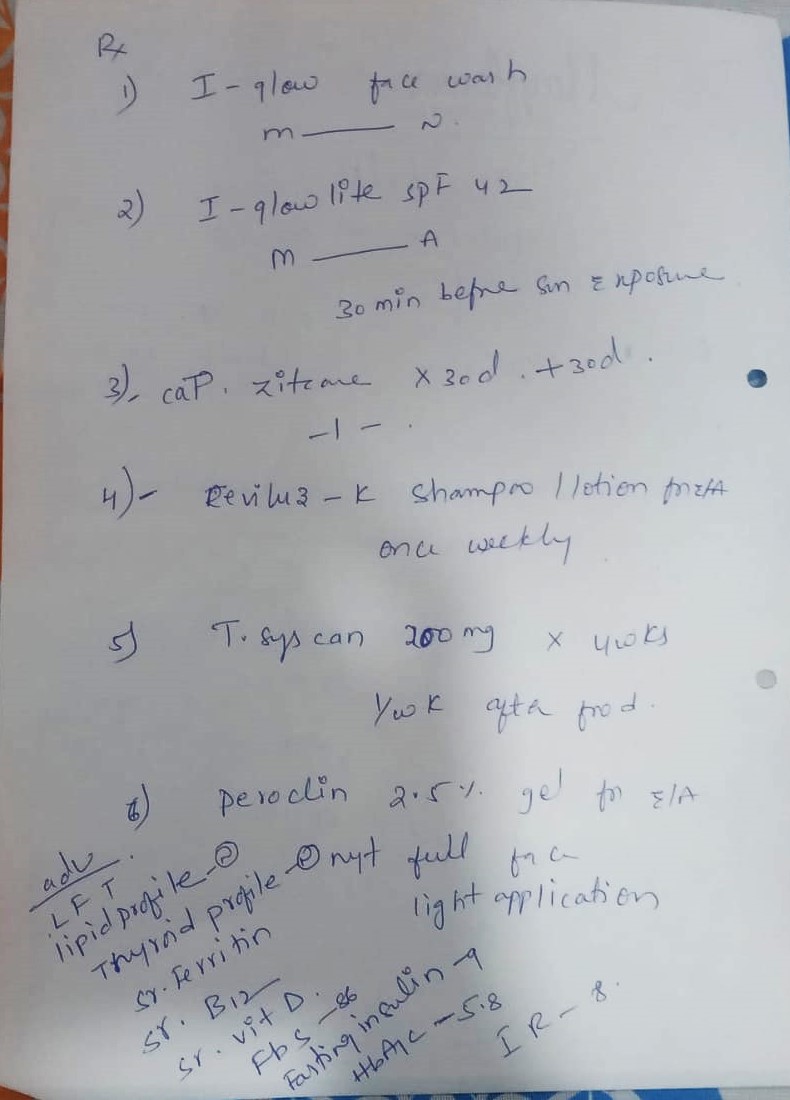 Rx
1) I-glow face wash
m —— N.
2) I-glow lite SPF 42
m —— A
30 min before sun Exposure
3) caP. x 30d. + 30d.
-1-.
4) - K shampoo / lotion for E/A
once weekly
5) T. syscan 200 mg x 4 wks
1/wk after food.
6) peroclin 2.5% gel for E/A
nyt full face
light application
adv.
LFT
lipid profile
Thyroid profile
Sr. Ferritin
Sr. B12
Sr. vit D.
Fbs - 86
Fasting insulin - 9
HbA1c - 5.8
IR - 8.